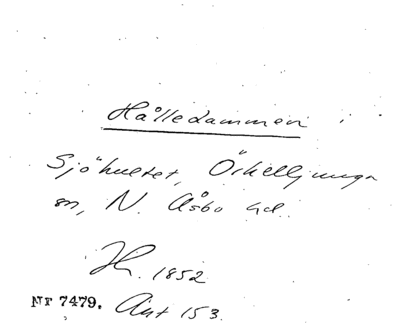 Hålledammen i
Sjöhultet, Örkelljunga
sn, N. Åsbo hd.
Th. 1852
Nr 7479. Ant 153.